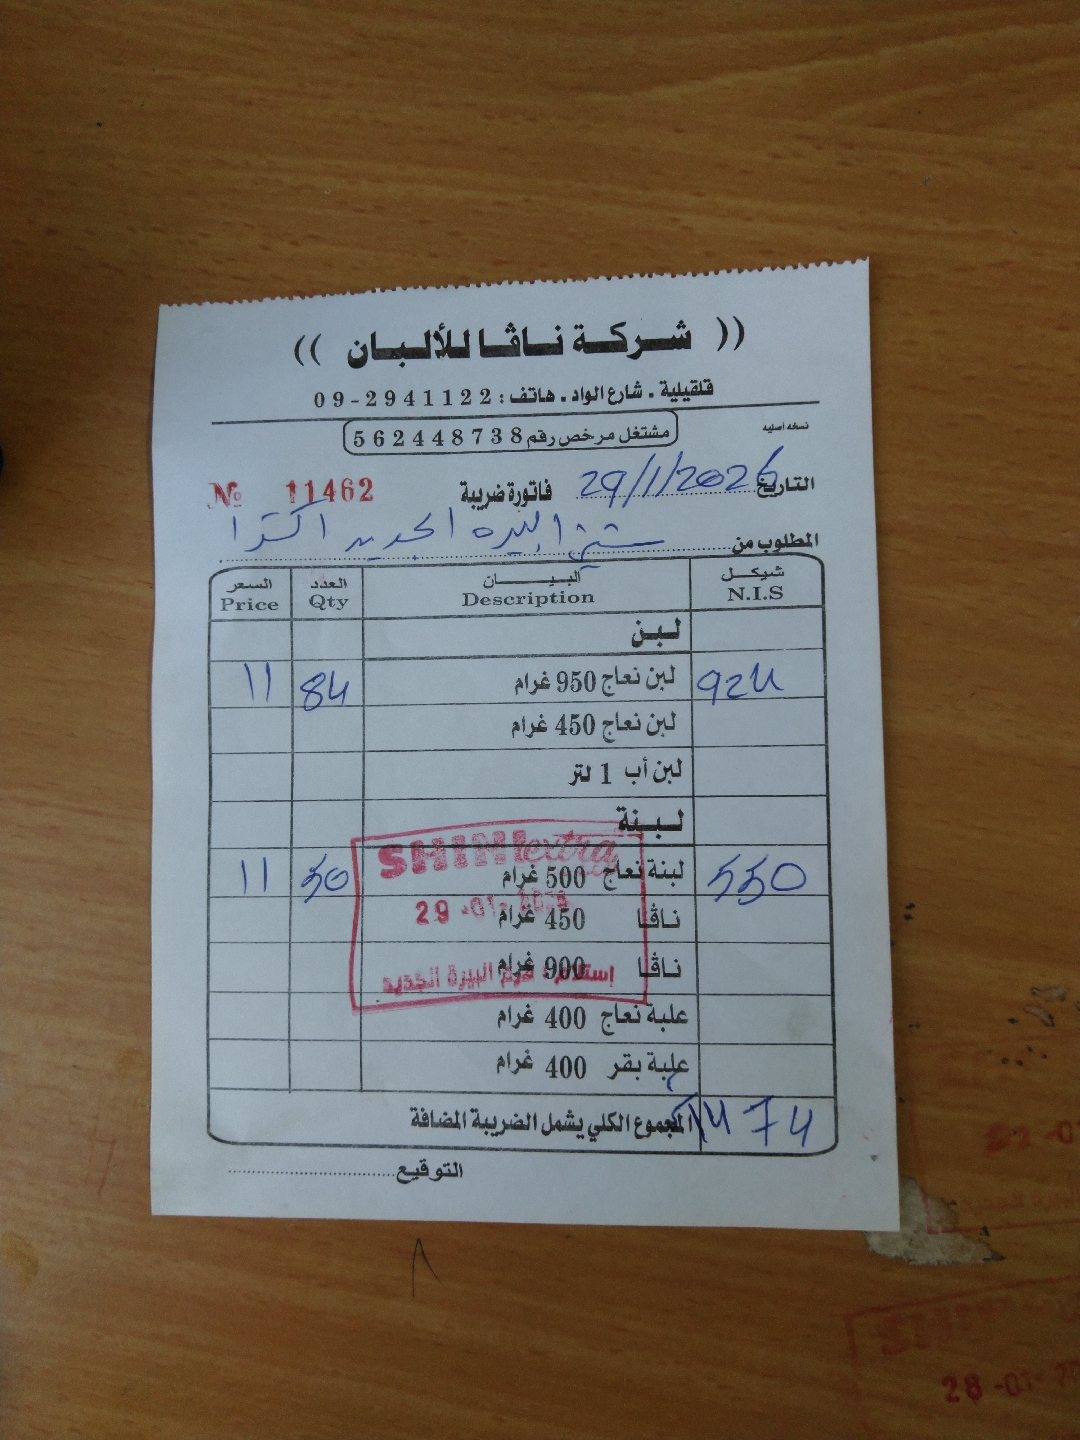 (( شركة ناڤا للألبان ))
قلقيلية . شارع الواد . هاتف : 09-2941122
مشتغل مرخص رقم 562448738
نسخة أصلية
التاريخ 29/1/2026 فاتورة ضريبة № 11462
المطلوب من البيره الجديد اكسترا
شيكل البيــــان العدد السعر
N.I.S Description Qty Price
لـبـن
924 لبن نعاج 950 غرام 84 11
لبن نعاج 450 غرام
لبن أب 1 لتر
لـبـنـة
SHINI extra
550 لبنة نعاج 500 غرام 50 11
29 -01- 2026
ناڤـا 450 غرام
ناڤـا 900 غرام
إستلام فرع البيرة الجديد
علبة نعاج 400 غرام
علبة بقر 400 غرام
المجموع الكلي يشمل الضريبة المضافة 1474
التوقيع
28 -01-